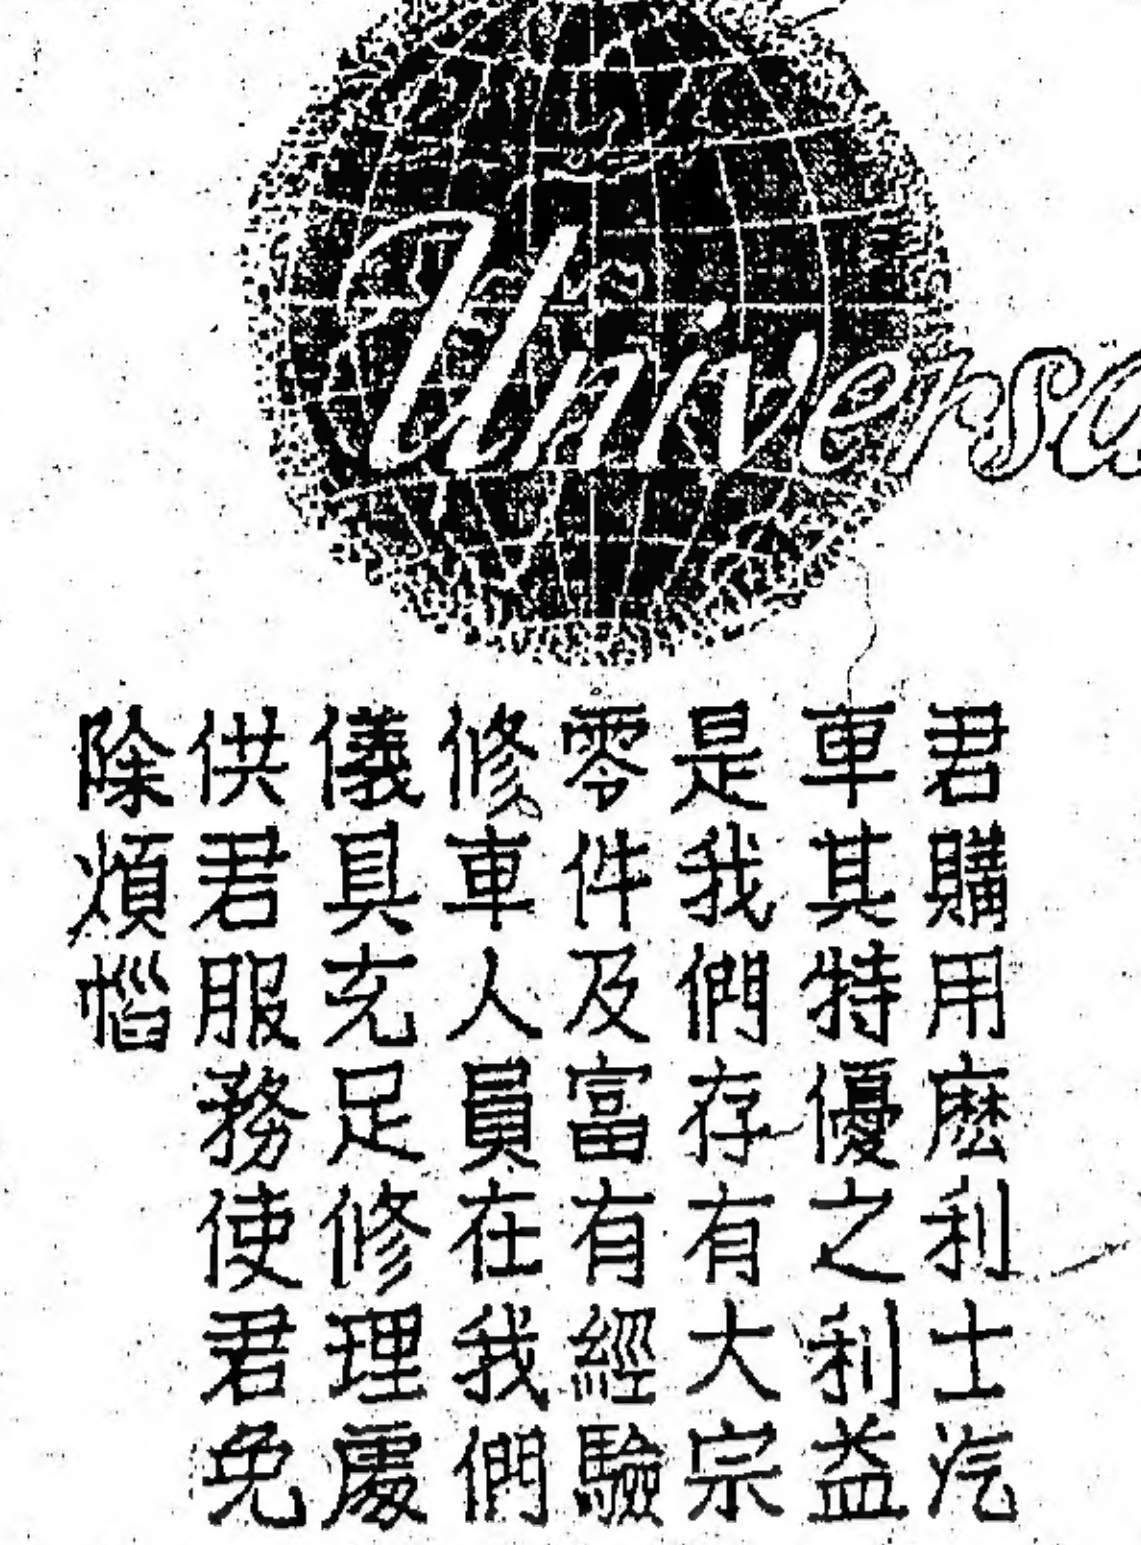 Universa
君購用麽利士汽
車其特優之利益
是我們存有大宗
零件及富有經驗
修車人員在我們
儀具充足修理處
供君服務使君免
除煩惱